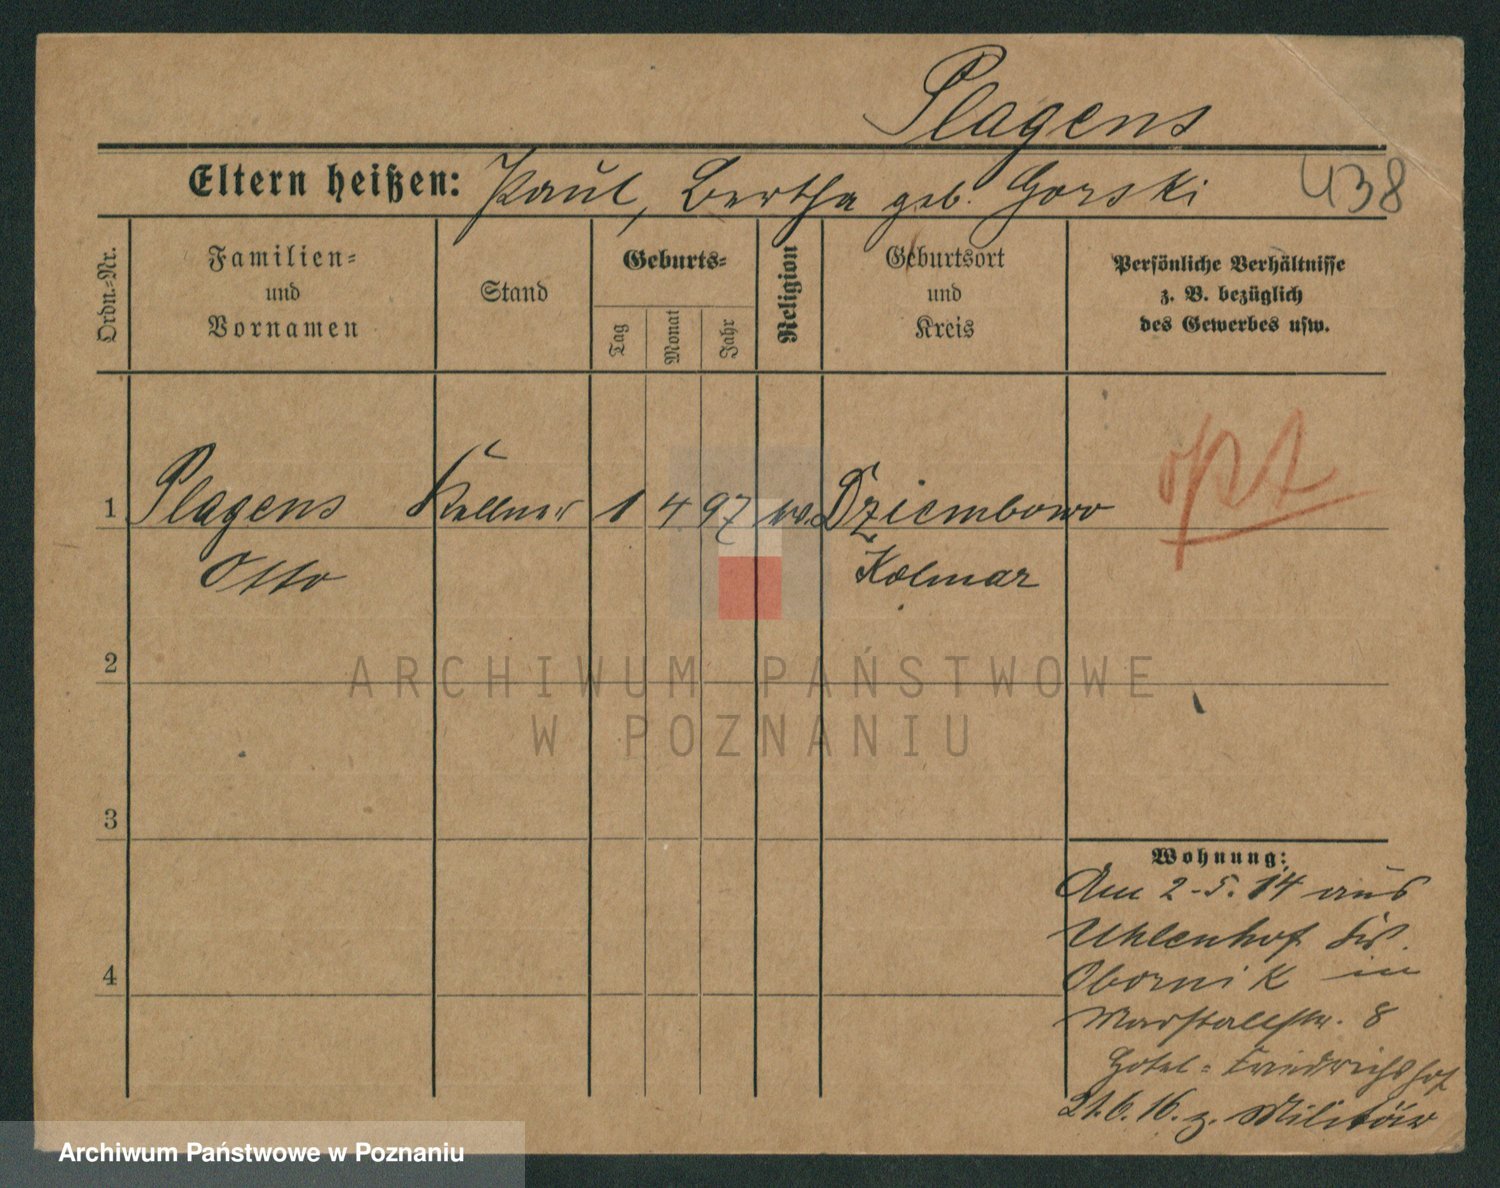 Plagens
Eltern heißen: Paul, Bertha geb. Gorski
438
Ordn.-Nr.
Familien-
und
Vornamen
Stand
Geburts-
Tag
Monat
Jahr
Religion
Geburtsort
und
Kreis
Persönliche Verhältnisse
z. B. bezüglich
des Gewerbes usw.
1 Plagens Kellner 1 4 97 ev. Dziembowo
Otto Kolmar
opt
2
3
4
Wohnung:
Am 2.5.14 aus
Uhlenhof Kr.
Obornik in
Marstallstr. 8
Hotel-Friedrichshof
21.6.16. z. Militär
ARCHIWUM PAŃSTWOWE
W POZNANIU
Archiwum Państwowe w Poznaniu